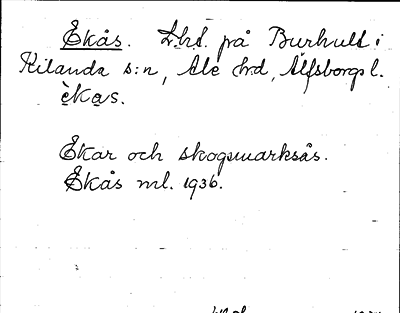 Ekås. Lht. på Burhult i
Kilanda s:n, Ale hd, Älfsborgs l.
èkas.
Ekar och skogsmarksås.
Ekås ml. 1936.